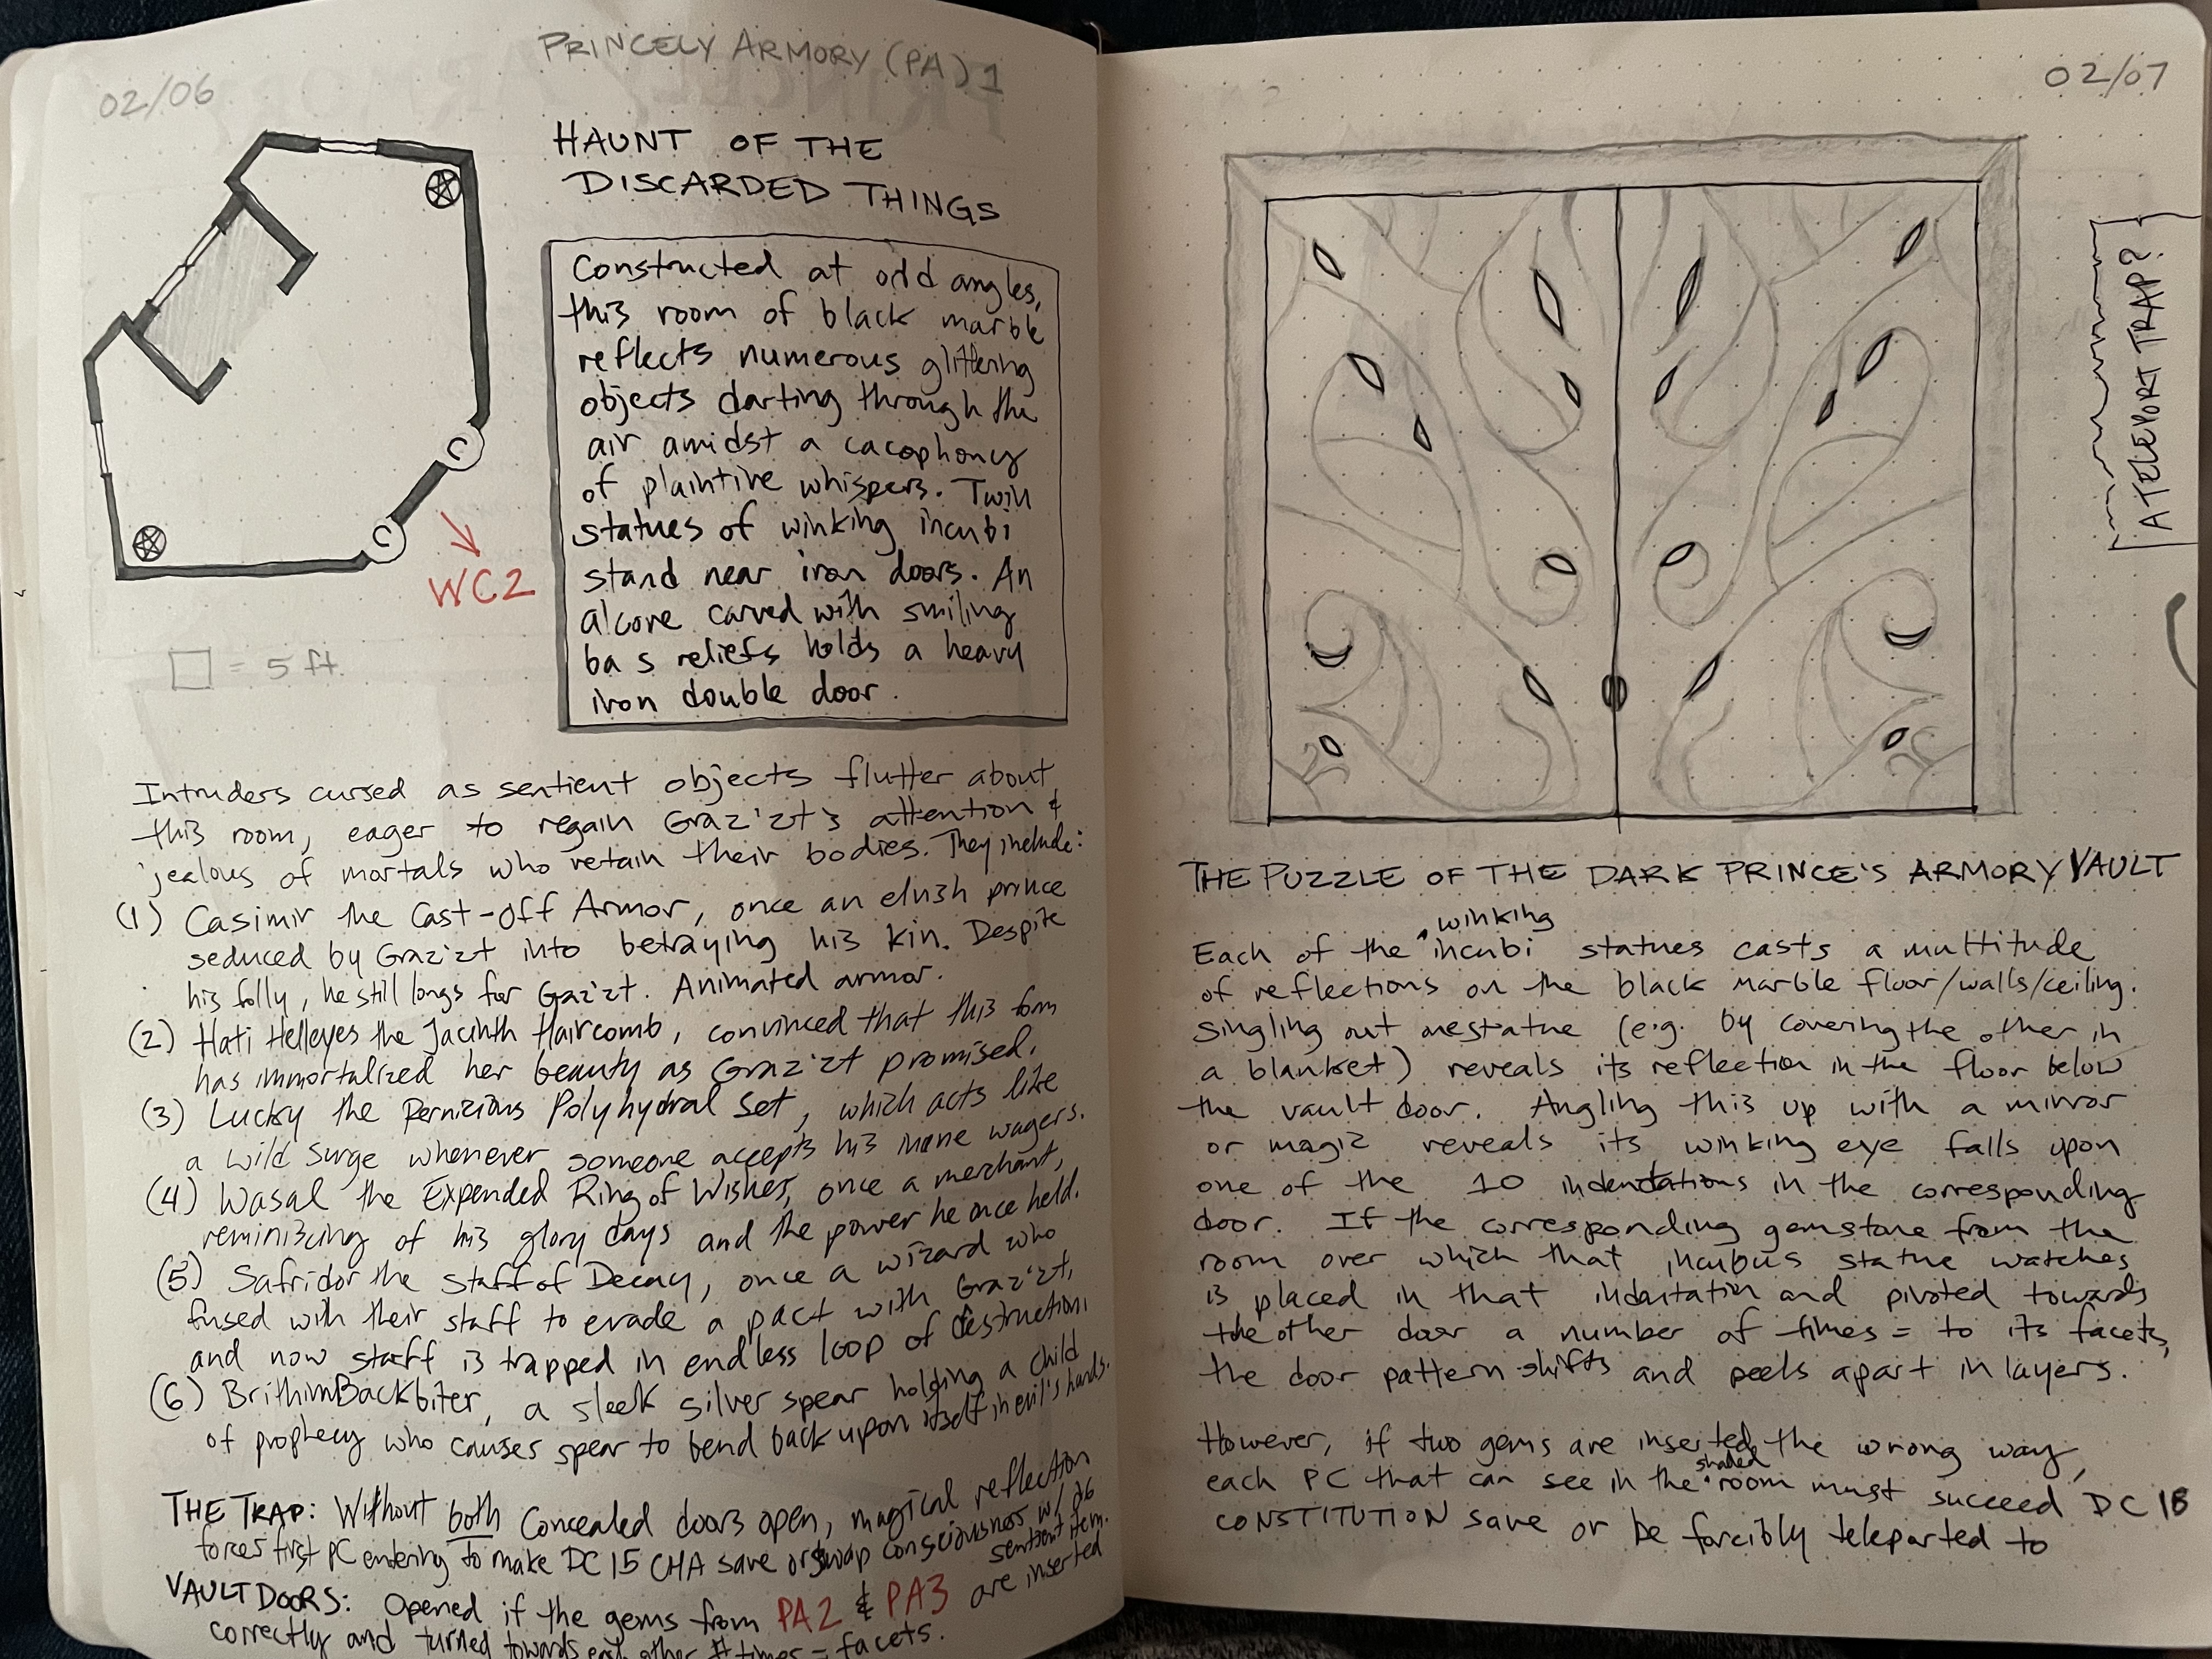 02/06
PRINCELY ARMORY (PA) 1
HAUNT OF THE
DISCARDED THINGS
C
C
WC2
= 5 ft.
Constructed at odd angles,
this room of black marble
reflects numerous glittering
objects darting through the
air amidst a cacophony
of plaintive whispers. Twin
statues of winking incubi
stand near iron doors. An
alcove carved with smiling
bas reliefs holds a heavy
iron double door.
Intruders cursed as sentient objects flutter about
this room, eager to regain Graz'zt's attention &
jealous of mortals who retain their bodies. They include:
(1) Casimir the Cast-off Armor, once an elvish prince
seduced by Graz'zt into betraying his kin. Despite
his folly, he still longs for Gaz'zt. Animated armor.
(2) Hati Helleyes the Jacinth Haircomb, convinced that this form
has immortalized her beauty as Graz'zt promised.
(3) Lucky the Pernizious Polyhydral Set, which acts like
a wild surge whenever someone accepts his inane wagers.
(4) Wasal the Expended Ring of Wishes, once a merchant,
reminiscing of his glory days and the power he once held.
(5) Safridor the Staff of Decay, once a wizard who
fused with their staff to evade a pact with Graz'zt,
and now staff is trapped in endless loop of destruction.
(6) Brithim Backbiter, a sleek silver spear holding a child
of prophecy who causes spear to bend back upon itself in evil's hands.
THE TRAP: Without both Concealed doors open, magical reflection
forces first PC entering to make DC 15 CHA save or swap consciousness w/ d6
sentient item.
VAULT DOORS: Opened if the gems from PA2 & PA3 are inserted
correctly and turned towards each other # times = facets.
02/07
A TELEPORT TRAP?
THE PUZZLE OF THE DARK PRINCE'S ARMORY VAULT
Each of the winking incubi statues casts a multitude
of reflections on the black marble floor/walls/ceiling.
Singling out one statue (e.g. by covering the other in
a blanket) reveals its reflection in the floor below
the vault door. Angling this up with a mirror
or magic reveals its winking eye falls upon
one of the 10 indentations in the corresponding
door. If the corresponding gemstone from the
room over which that incubus statue watches
is placed in that indentation and pivoted towards
the other door a number of times = to its facets,
the door pattern shifts and peels apart in layers.
However, if two gems are inserted the wrong way,
each PC that can see in the shaded room must succeed DC 18
CONSTITUTION save or be forcibly teleported to